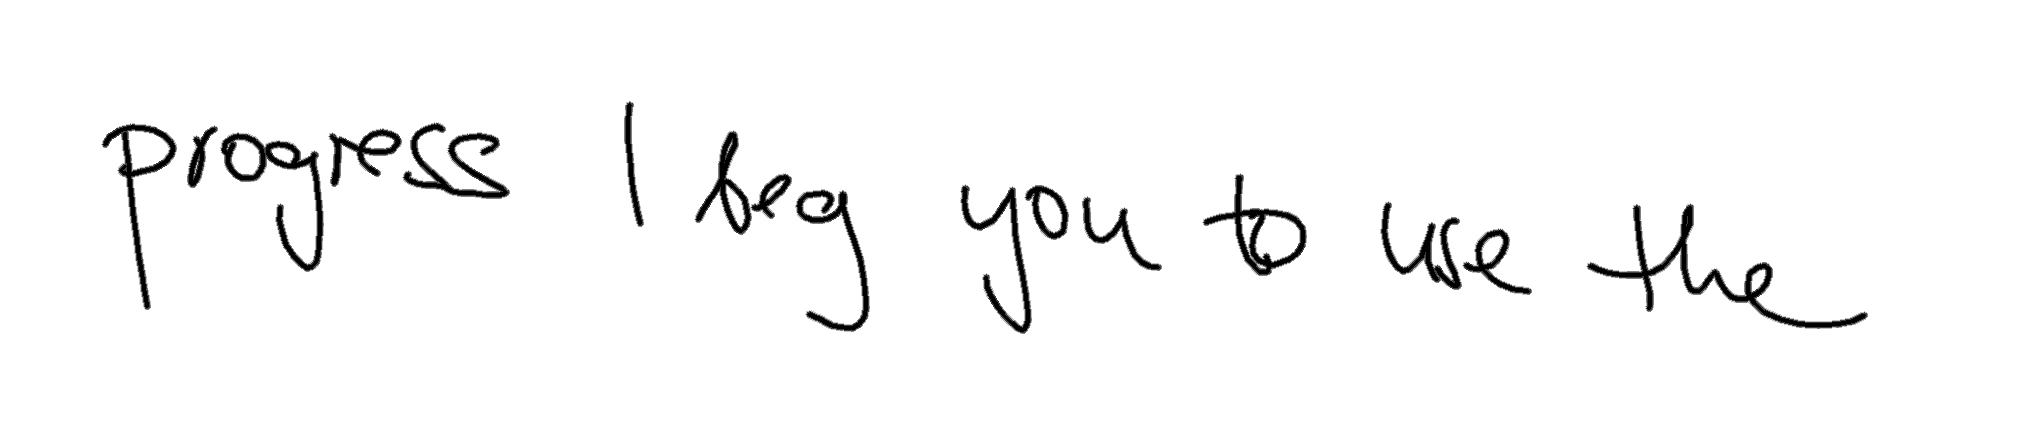 progress I beg you to use the